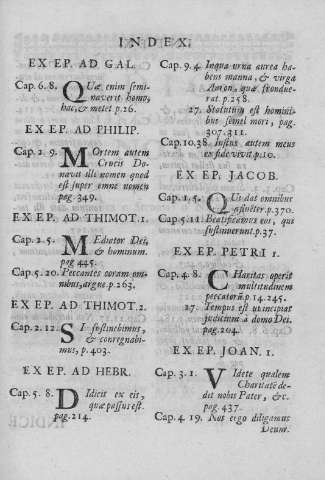 INDEX.
EX EP. AD GAL.
Cap. 6. 8. QUæ enim semi-
naverit homo,
hæc, & metet p.26.
EX EP. AD PHILIP.
Cap. 2. 9. MOrtem autem
Crucis Do-
navit illi nomen quod
est super omne nomen
pag. 349.
EX EP. AD THIMOT. 1.
Cap. 2. 5. MEdiator Dei,
& hominum.
pag 445.
Cap. 5. 20. Peccantes coram om-
nibus, argue p. 263.
EX EP. AD THIMOT. 2.
Cap. 2. 12. SI sustinebimus,
& conregnabi-
mus, p. 403.
EX EP. AD HEBR.
Cap. 5. 8. DIdicit ex eis,
quæ passus est.
pag. 214.
Cap. 9. 4. Inqua urna aurea ha-
bens manna, & virga
Aaron, quæ fronduε-
rat p. 258.
27. Statutum est homini-
bus semel mori, pag.
307. 311.
Cap. 10. 38 Iustus autem meus
ex fide vivit p. 10.
EX EP. JACOB.
Cap. 1. 5. QUi dat omnibus
afluēter p. 370.
Cap. 5. 11. Beatificamus eos, qui
sustinuerunt p. 37.
EX EP. PETRI 1.
Cap. 4. 8. CHaritas operit
multitudinem
peccatorũ p 14. 245.
17. Tempus est ut incipiat
judiciũ à domo Dei.
pag. 204.
EX EP. JOAN. 1.
Cap. 3. 1. VIdete qualem
Charitatē de-
det nobis Pater, &c.
pag. 437.
Cap. 4. 19. Nos ergo diligamus
Deum.